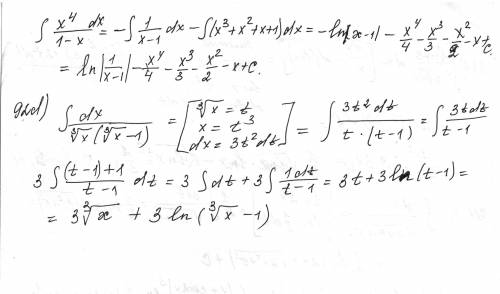 ∫ x⁴ dx / (1-x) = -∫ 1/(x-1) dx - ∫(x³+x²+x+1)dx = -ln|x-1| - x⁴/4 - x³/3 - x²/2 - x + C
= ln|1/(x-1)| - x⁴/4 - x³/3 - x²/2 - x + C.
92d) ∫ dx / (∛x (∛x - 1)) = [∛x = t
x = t³
dx = 3t² dt] = ∫ 3t² dt / (t · (t-1)) = ∫ 3t dt / (t-1)
3 ∫ ((t-1)+1)/(t-1) dt = 3 ∫ dt + 3 ∫ 1dt/(t-1) = 3t + 3 ln(t-1) =
= 3∛x + 3 ln(∛x - 1)